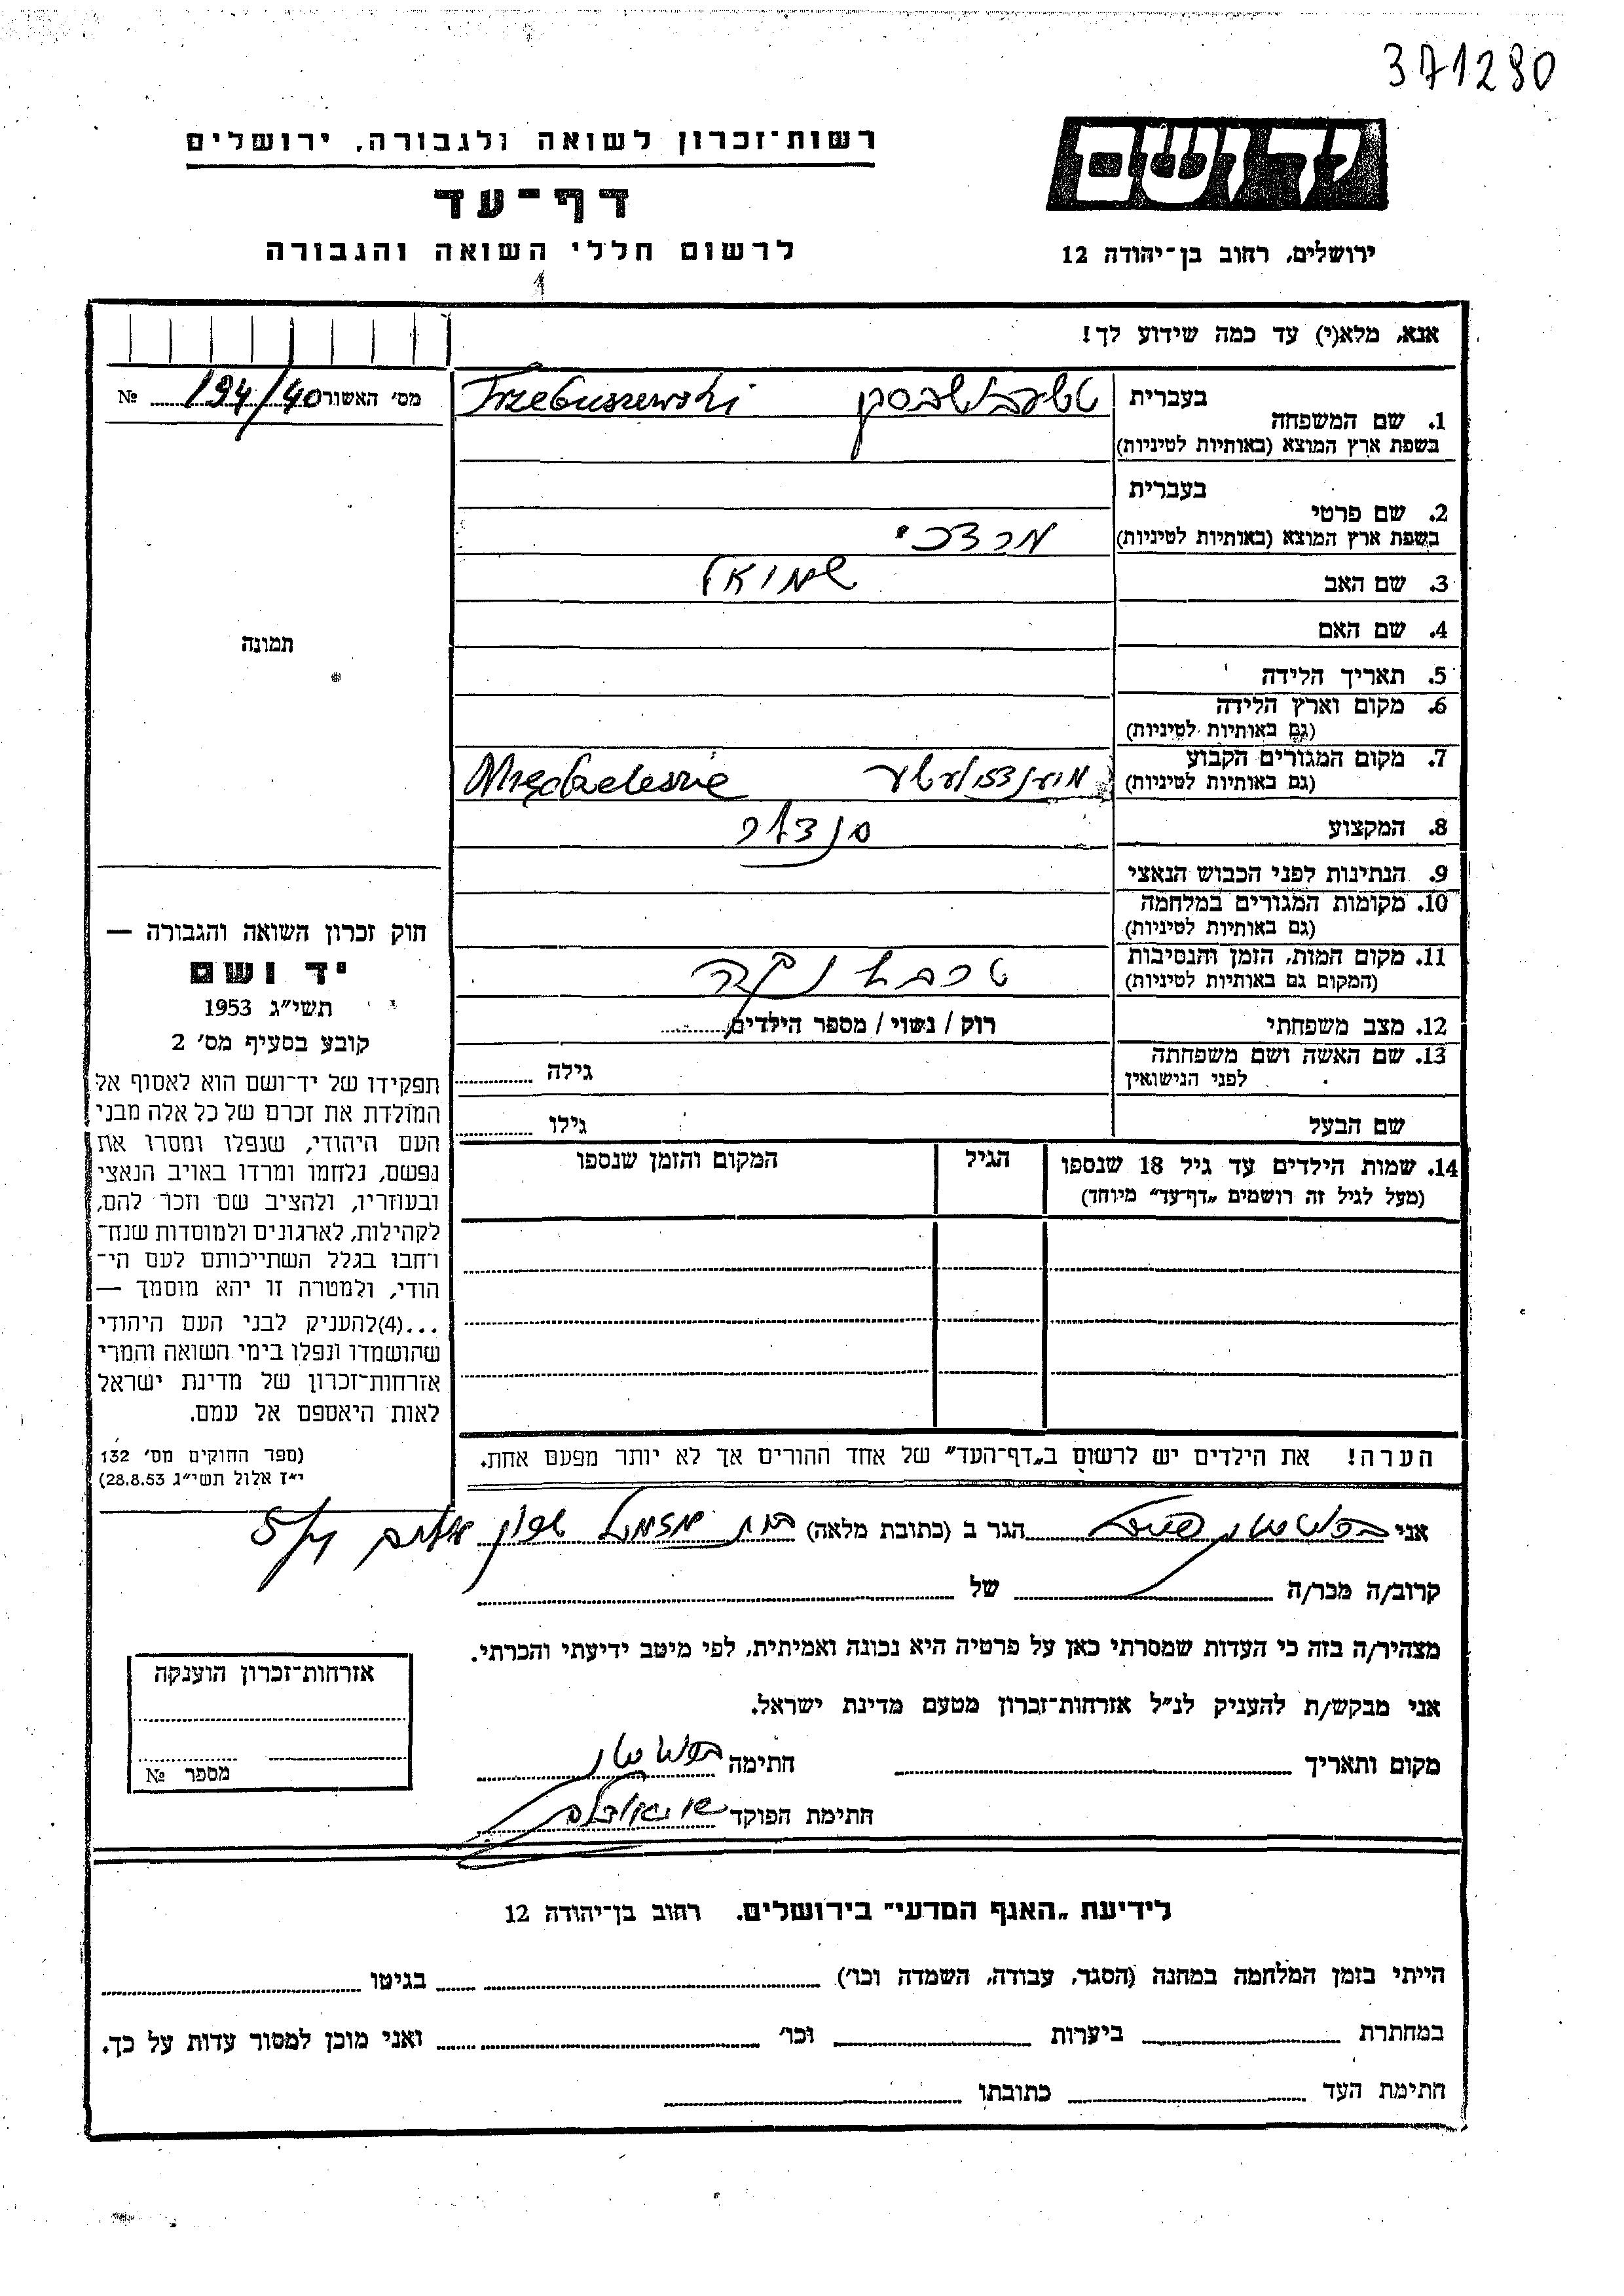 371290
יד ושם
רשות־זכרון לשואה ולגבורה, ירושלים
דף־עד
לרשום חללי השואה והגבורה
ירושלים, רחוב בן־יהודה 12
אנא, מלא(י) עד כמה שידוע לך!
מס׳ האשור 194/40 №
בעברית
1. שם המשפחה
בשפת ארץ המוצא (באותיות לטיניות)
Trzebuszewski
בעברית
2. שם פרטי
בשפת ארץ המוצא (באותיות לטיניות)
מרדכי
3. שם האב שמואל
4. שם האם
תמונה
5. תאריך הלידה
6. מקום וארץ הלידה
(גם באותיות לטיניות)
7. מקום המגורים הקבוע
(גם באותיות לטיניות)
8. המקצוע סנדלר
9. הנתינות לפני הכבוש הנאצי
10. מקומות המגורים במלחמה
(גם באותיות לטיניות)
11. מקום המות, הזמן והנסיבות
(המקום גם באותיות לטיניות)
טרבלינקה
12. מצב משפחתי רוק / נשוי / מספר הילדים
13. שם האשה ושם משפחתה
לפני הנישואין
גילה
שם הבעל גילו
14. שמות הילדים עד גיל 18 שנספו הגיל המקום והזמן שנספו
(מעל לגיל זה רושמים „דף־עד״ מיוחד)
הערה! את הילדים יש לרשום ב„דף־העד״ של אחד ההורים אך לא יותר מפעם אחת.
חוק זכרון השואה והגבורה —
יד ושם
תשי״ג 1953
קובע בסעיף מס׳ 2
תפקידו של יד־ושם הוא לאסוף אל
המולדת את זכרם של כל אלה מבני
העם היהודי, שנפלו ומסרו את
נפשם, נלחמו ומרדו באויב הנאצי
ובעוזריו, ולהציב שם וזכר להם,
לקהילות, לארגונים ולמוסדות שנח־
רחבו בגלל השתייכותם לעם הי־
הודי, ולמטרה זו יהא מוסמך —
...(4)להעניק לבני העם היהודי
שהושמדו ונפלו בימי השואה והמרי
אזרחות־זכרון של מדינת ישראל
לאות היאספם אל עמם.
(ספר החוקים מס׳ 132
י״ז אלול תשי״ג 28.8.53)
אני הגר ב (כתובת מלאה)
קרוב/ה מכר/ה של
מצהיר/ה בזה כי העדות שמסרתי כאן על פרטיה היא נכונה ואמיתית, לפי מיטב ידיעתי והכרתי.
אני מבקש/ת להעניק לנ״ל אזרחות־זכרון מטעם מדינת ישראל.
מקום ותאריך חתימה
חתימת הפוקד
אזרחות־זכרון הוענקה
מספר №
לידיעת „האגף המדעי״ בירושלים. רחוב בן־יהודה 12
הייתי בזמן המלחמה במחנה (הסגר, עבודה, השמדה וכו׳) בגיטו
במחתרת ביערות וכו׳ ואני מוכן למסור עדות על כך.
חתימת העד כתובתו